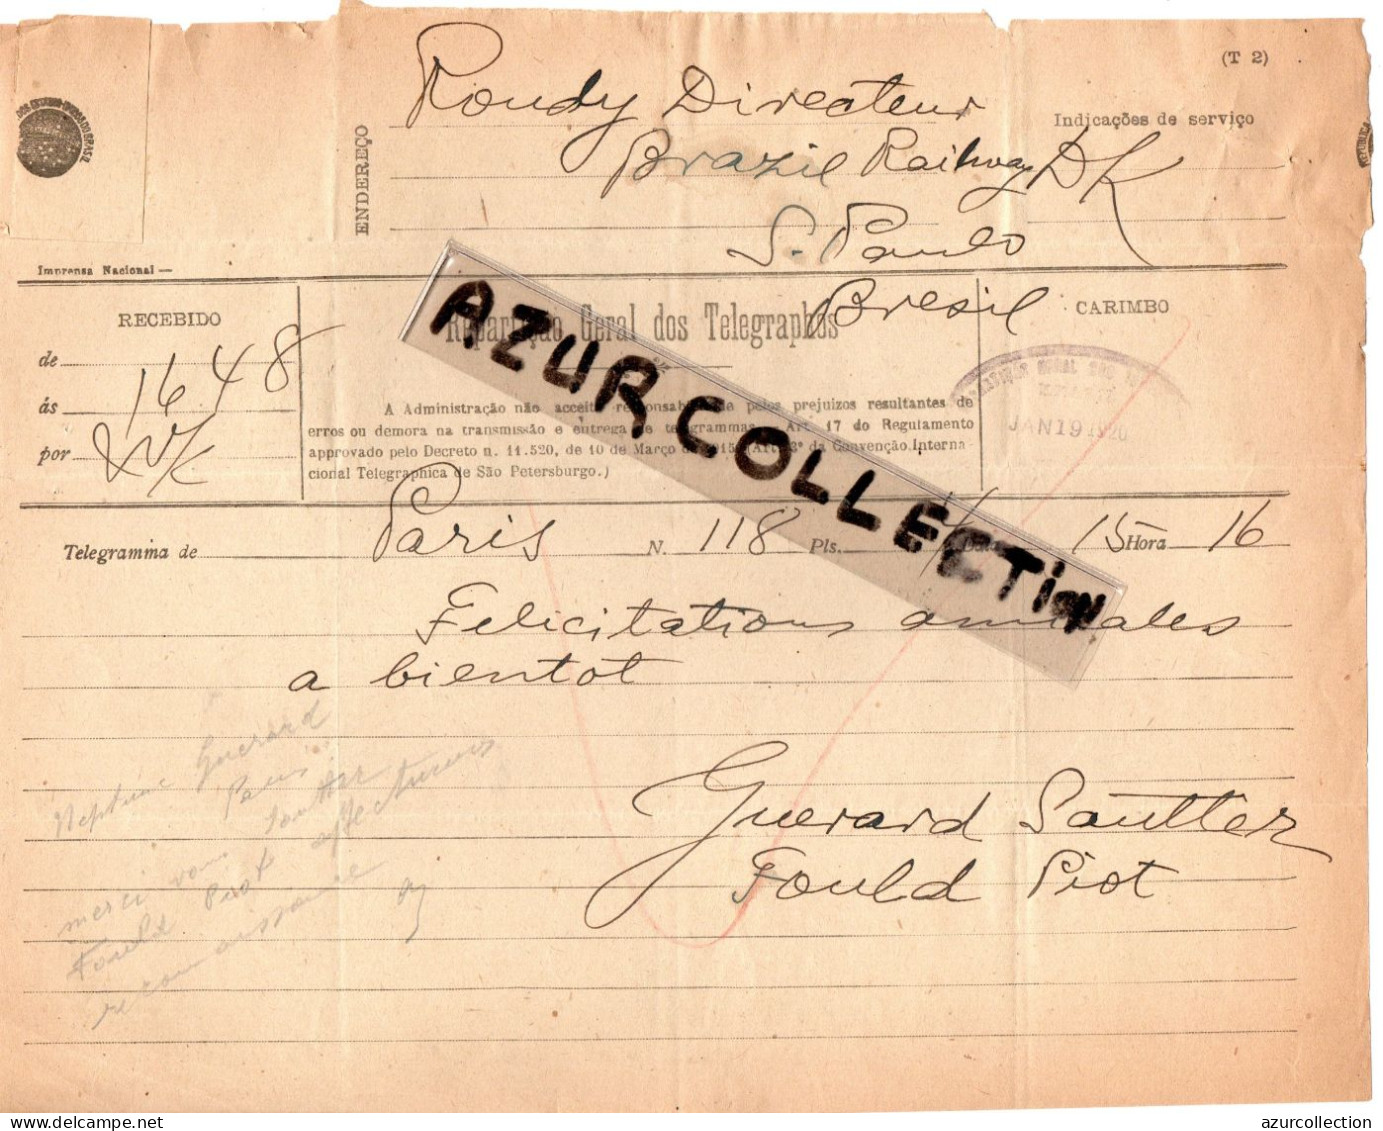 (T 2)
ENDEREÇO
Rondy Directeur
Indicações de serviço
Brazil Railway DK
S. Paulo
Bresil
Imprensa Nacional —
RECEBIDO
de 16 48
ás
por
Repartição Geral dos Telegraphos
CARIMBO
JAN 19 1920
A Administração não acceita responsabilidade pelos prejuizos resultantes de
erros ou demora na transmissão e entrega de telegrammas. Art. 17 do Regulamento
approvado pelo Decreto n. 11.520, de 10 de Março de 1915 (Art. 3º da Convenção Interna-
cional Telegraphica de São Petersburgo.)
AZUR COLLECTION
Telegramma de Paris N. 118 Pls. Data 15 Hora 16
Felicitations amicales
a bientot
Guerard Sautter
Fould Piot
Neptune Guerard
Paris
merci vous Sautter
Fould Piot affectueuses
reconnaissance
azurcollection